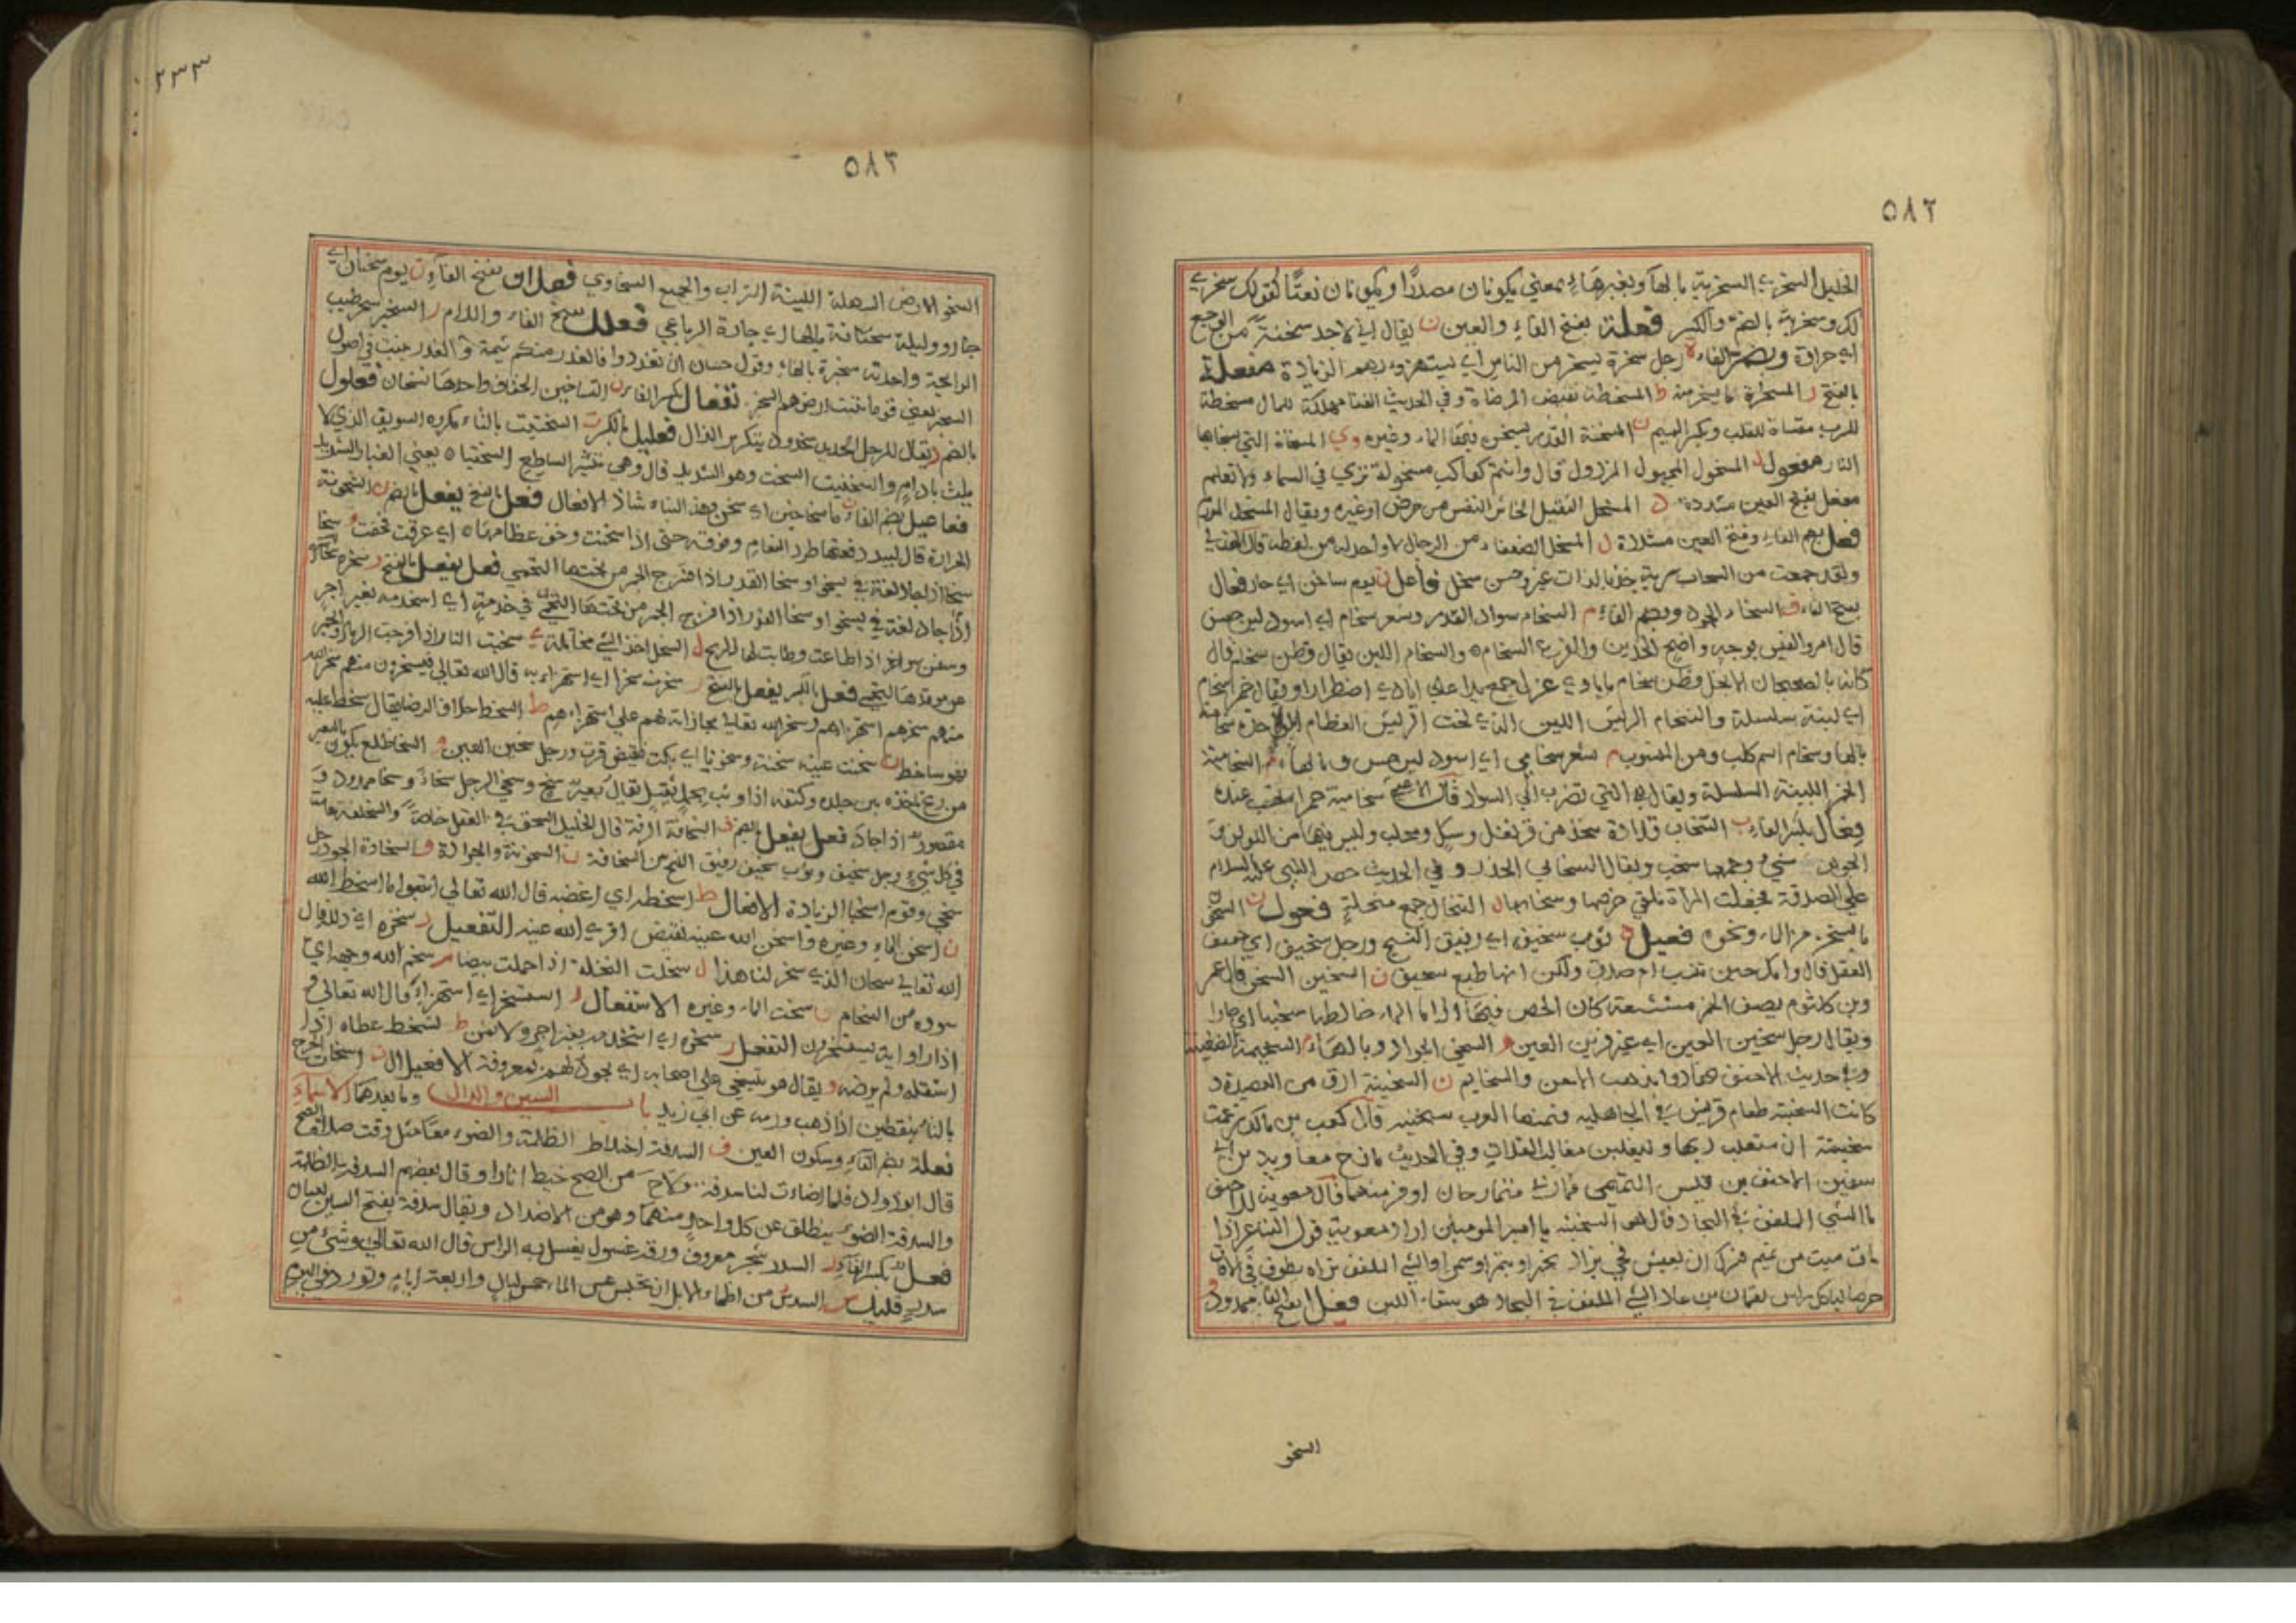 ٥٨٢
الخليل السخري السخرية بالهاء وبغيرها بمعني يكونان مصدرًا ويكونان نعتًا كقولك سخري
لك وسخرية بالضم والكسر فعلة بفتح الفاء والعين ن يقال اني لاجد سخنة من الوجع
اي حرافة وبضم الفاء رجل سخرة يسخر من الناس اي يستهزء بهم الزيادة مفعلة
بالفتح ر المسخرة ما يسخر منه ط المسخطة نقيض المرضاة وفي الحديث الغنا مهلكة للمال مسخطة
للرب مقساة للقلب وبكسر الميم ن المسخنة القدر يسخن فيها الماء وغيره وي المسخاة التي يسخا بها
النار مفعول ل المسخول المجهول المرذول قال وانتم كواكب مسخولة تري في السماء ولا تعلم
مفعل بفتح العين مشددة د المسخد الثقيل الخاثر النفس من مرض او غيره ويقال المسخد المورم
فعل بضم الفاء وفتح العين مشددة ل السخل الضعفاء من الرجال لا واحد له من لفظه قال
ولقد جمعت من الصحاب سرية خدبا لدات غير وخش سخل فاعل ن يوم ساخن اي حار فعال
بفتح الفاء ف السخاء الجود وبضم الفاء م السخام سواد القدر وشعر سخام اي اسود لين حسن
قال امرو القيس بوجه واضح الخدين والفرع السخام والسخام اللين يقال قطن سخام قال
كانه بالصحصحان الانجل قطن سخام بايادي غزل جمع يدا علي ايادي اضطرارا ويقال خمر سخام
اي لينة سلسلة والسخام الريش اللين الذي تحت الريش العظام الواحدة سخامة
بالها وسخام اسم كلب ومن المنسوب م شعر سخامي اي اسود لين حسن وبالهاء م السخامية
الخمر اللينة السلسلة ويقال هي التي تضرب الي السواد قال الاعشي سخامية حمرا تحسب عندما
فعال بكسر الفاء ب السخاب قلادة تتخذ من قرنفل وسك ومحلب وليس فيها من اللولو و
الجوهر شيء وجمعها سخب ويقال السخاب الخرز وفي الحديث حض النبي عليه السلام
علي الصدقة فجعلت المراة تلقي خرصها وسخابها ل السخال جمع سخلة فعول ن السخون
ما يسخن من الماء ونحوه فعيل ف ثوب سخيف اي رقيق النسج ورجل سخيف اي خفيف
العقل قال وامك حين تنسب ام صدق ولكن ابنها طبع سخيف ن السخين السخن قال عمر
وبن كلثوم يصف الخمر مشعشعة كان الحص فيها اذا ما الماء خالطها سخينا اي حارا
ويقال رجل سخين العين اي غير قرير العين و السخي الجواد وبالهاء م السخيمة الضغينة
وفي حديث الاحنف تهادوا تذهب الاحن والسخايم ن السخينة ارق من العصيدة و
كانت السخينة طعام قريش في الجاهلية فسمتها العرب سخينة قال كعب بن مالك زعمت
سخينة ان ستغلب ربها وليغلبن مغالب الغلاب وفي الحديث مازح معاوية بن ابي
سفين الاحنف بن قيس التميمي فما رئي متمازحان اوقر منهما قال معوية للاحنف
ما الشي الملفف في البجاد قال هو السخينة يا امير المومنين اراد معوية قول الشاعر اذا
مات ميت من تميم فسرك ان يعيش فجي بزاد بخبز او بتمر او سمن او الشي الملفف تراه يطوف في الافاق
حرصا لياكل راس لقمان بن عاد الشي الملفف في البجاد هو سقاء اللبن فعلاء بفتح الفاء ممدود
السخو
٢٣٣
٥٨٣
السخو الارض السهلة اللينة التراب والجميع السخاوي فعلان بفتح الفاء ن يوم سخنان اي
حار وليلة سخنانة بالهاء اي حارة الرباعي فعلل بفتح الفاء واللام ر السخبر شجر طيب
الرايحة واحدته سخبرة بالهاء وقول حسان ان تغدروا فالغدر منكم شيمة والغدر ينبت في اصول
السخبر يعني قوما تنبت ارضهم السخبر تفعال بكسر التاء ن التساخين الخفاف واحدها تسخان فعلول
بالضم د يقال للرجل الحديد سخدود بتكرير الدال فعليل بالكسر ت السختيت بالتاء مكررة السويق الذي لا
يلت بادام والسختيت السخت وهو الشديد قال وهي تثير الساطع السختيتا يعني الغبار الشديد
فعاعيل بضم الفاء ن ماء سخاخين اي سخن وهذا البناء شاذ الافعال فعل بالفتح يفعل بالضم ن السخونة
الحرارة قال لبيد رفعتها طرد النعام وفوقه حتي اذا سخنت وخف عظامها اي عرقت فخفت و سخا
اذا جاد لغة في يسخو او سخا القدر اذا فرج الجمر من تحتها التخمي فعل يفعل بالفتح ر سخره
وسفن سواخر اذا اطاعت وطابت لها الريح ل السخل اخذ الشي مخاتلة ي سخيت النار اذا فرجت الرماد والجمر
عن موقدها فعل بالكسر يفعل بالفتح ر سخر منه سخرا اي استهزاء به قال الله تعالي فيسخرون منهم سخر الله
منهم سخرهم استهزاوهم وسخر الله تعالي مجازاته لهم علي استهزاءهم ط السخط خلاف الرضا يقال سخط عليه
فهو ساخط ن سخنت عينه سخنة وسخونا اي بكت نقيض قرت ورجل سخين العين و السخا ظلع يكون
من ريح تاخذه بين جلده وكتفه اذا وثب بحمل ثقيل يقال بعير سخ وسخي الرجل سخاء وسخا ممدود و
مقصور اذا جاد فعل يفعل بالضم ف السخافة الرقة قال الخليل السخف في العقل خاصة والسخافة عامة
في كل شيء رجل سخيف وثوب سخيف رقيق النسج بين السخافة ن السخونة والحرارة و السخاوة الجود رجل
سخي وقوم اسخيا الزيادة الافعال ط اسخطه اي اغضبه قال الله تعالي اتبعوا ما اسخط الله
ن اسخن الماء وغيره واسخن الله عينه نقيض اقر الله عينه التفعيل ر سخره اي ذلله قال
الله تعالي سبحان الذي سخر لنا هذا ل سخلت النخلة اذا حملت شيصا م سخم الله وجهه اي
سوده من السخام ن سخنت الماء وغيره الاستفعال ر استسخر اي استهزاء قال الله تعالي و
اذا راوا اية يستسخرون التفعل ر تسخره اي استخدمه بغير اجر ولا ثمن ط تسخط عطاه اذا
استقله ولم يرضه و يقال هو يتسخي علي اصحابه اي يجود لهم بمعروفه الافعيلال ت اسخات الجرح
بالتاء بنقطتين اذا ذهب ورمه عن ابي زيد باب السين والدال وما بعدهما الاسماء
فعلة بضم الفاء وسكون العين ف السدفة اختلاط الظلمة والضوء معا مثل وقت صلاة الصبح
قال ابو دواد فلما اضاءت لنا سدفة ولاح من الصبح خيط انارا وقال بعضهم السدفة الظلمة
والسدفة الضوء ينطلق عن كل واحد منهما وهو من الاضداد ويقال سدفة بفتح السين لغتان
فعل بكسر الفاء ر السدر شجر معروف ورقه غسول يغسل به الراس قال الله تعالي وشيء من
سدر قليل س السدس من اظماء الابل ان تحبس عن الماء خمس ليال واربعة ايام وتورد في اليوم